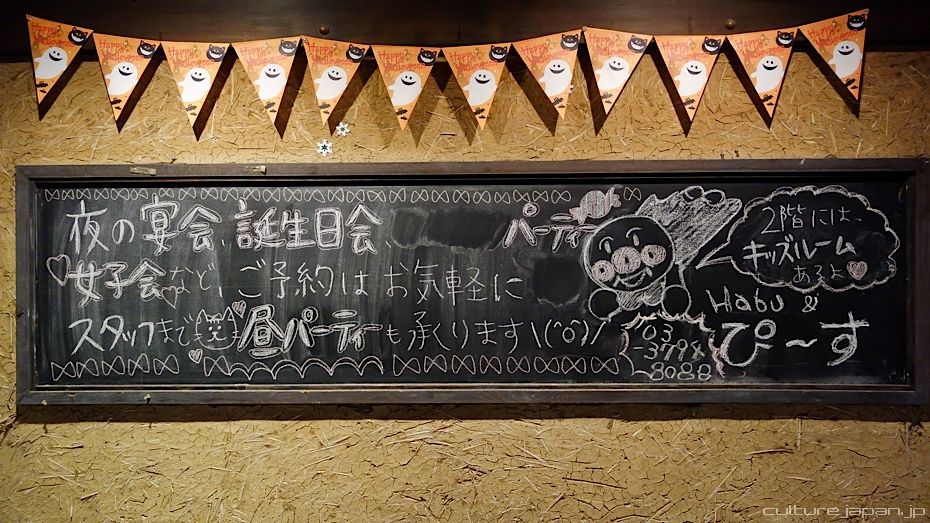 Happy Halloween
夜の宴会、誕生日会、パーティー
女子会など、ご予約はお気軽に
スタッフまで 昼パーティーも承ります\(^o^)/
2階には、
キッズルーム
あるよ
Habu &
ぴ〜す
03
-3794
8088
culture.japan.jp